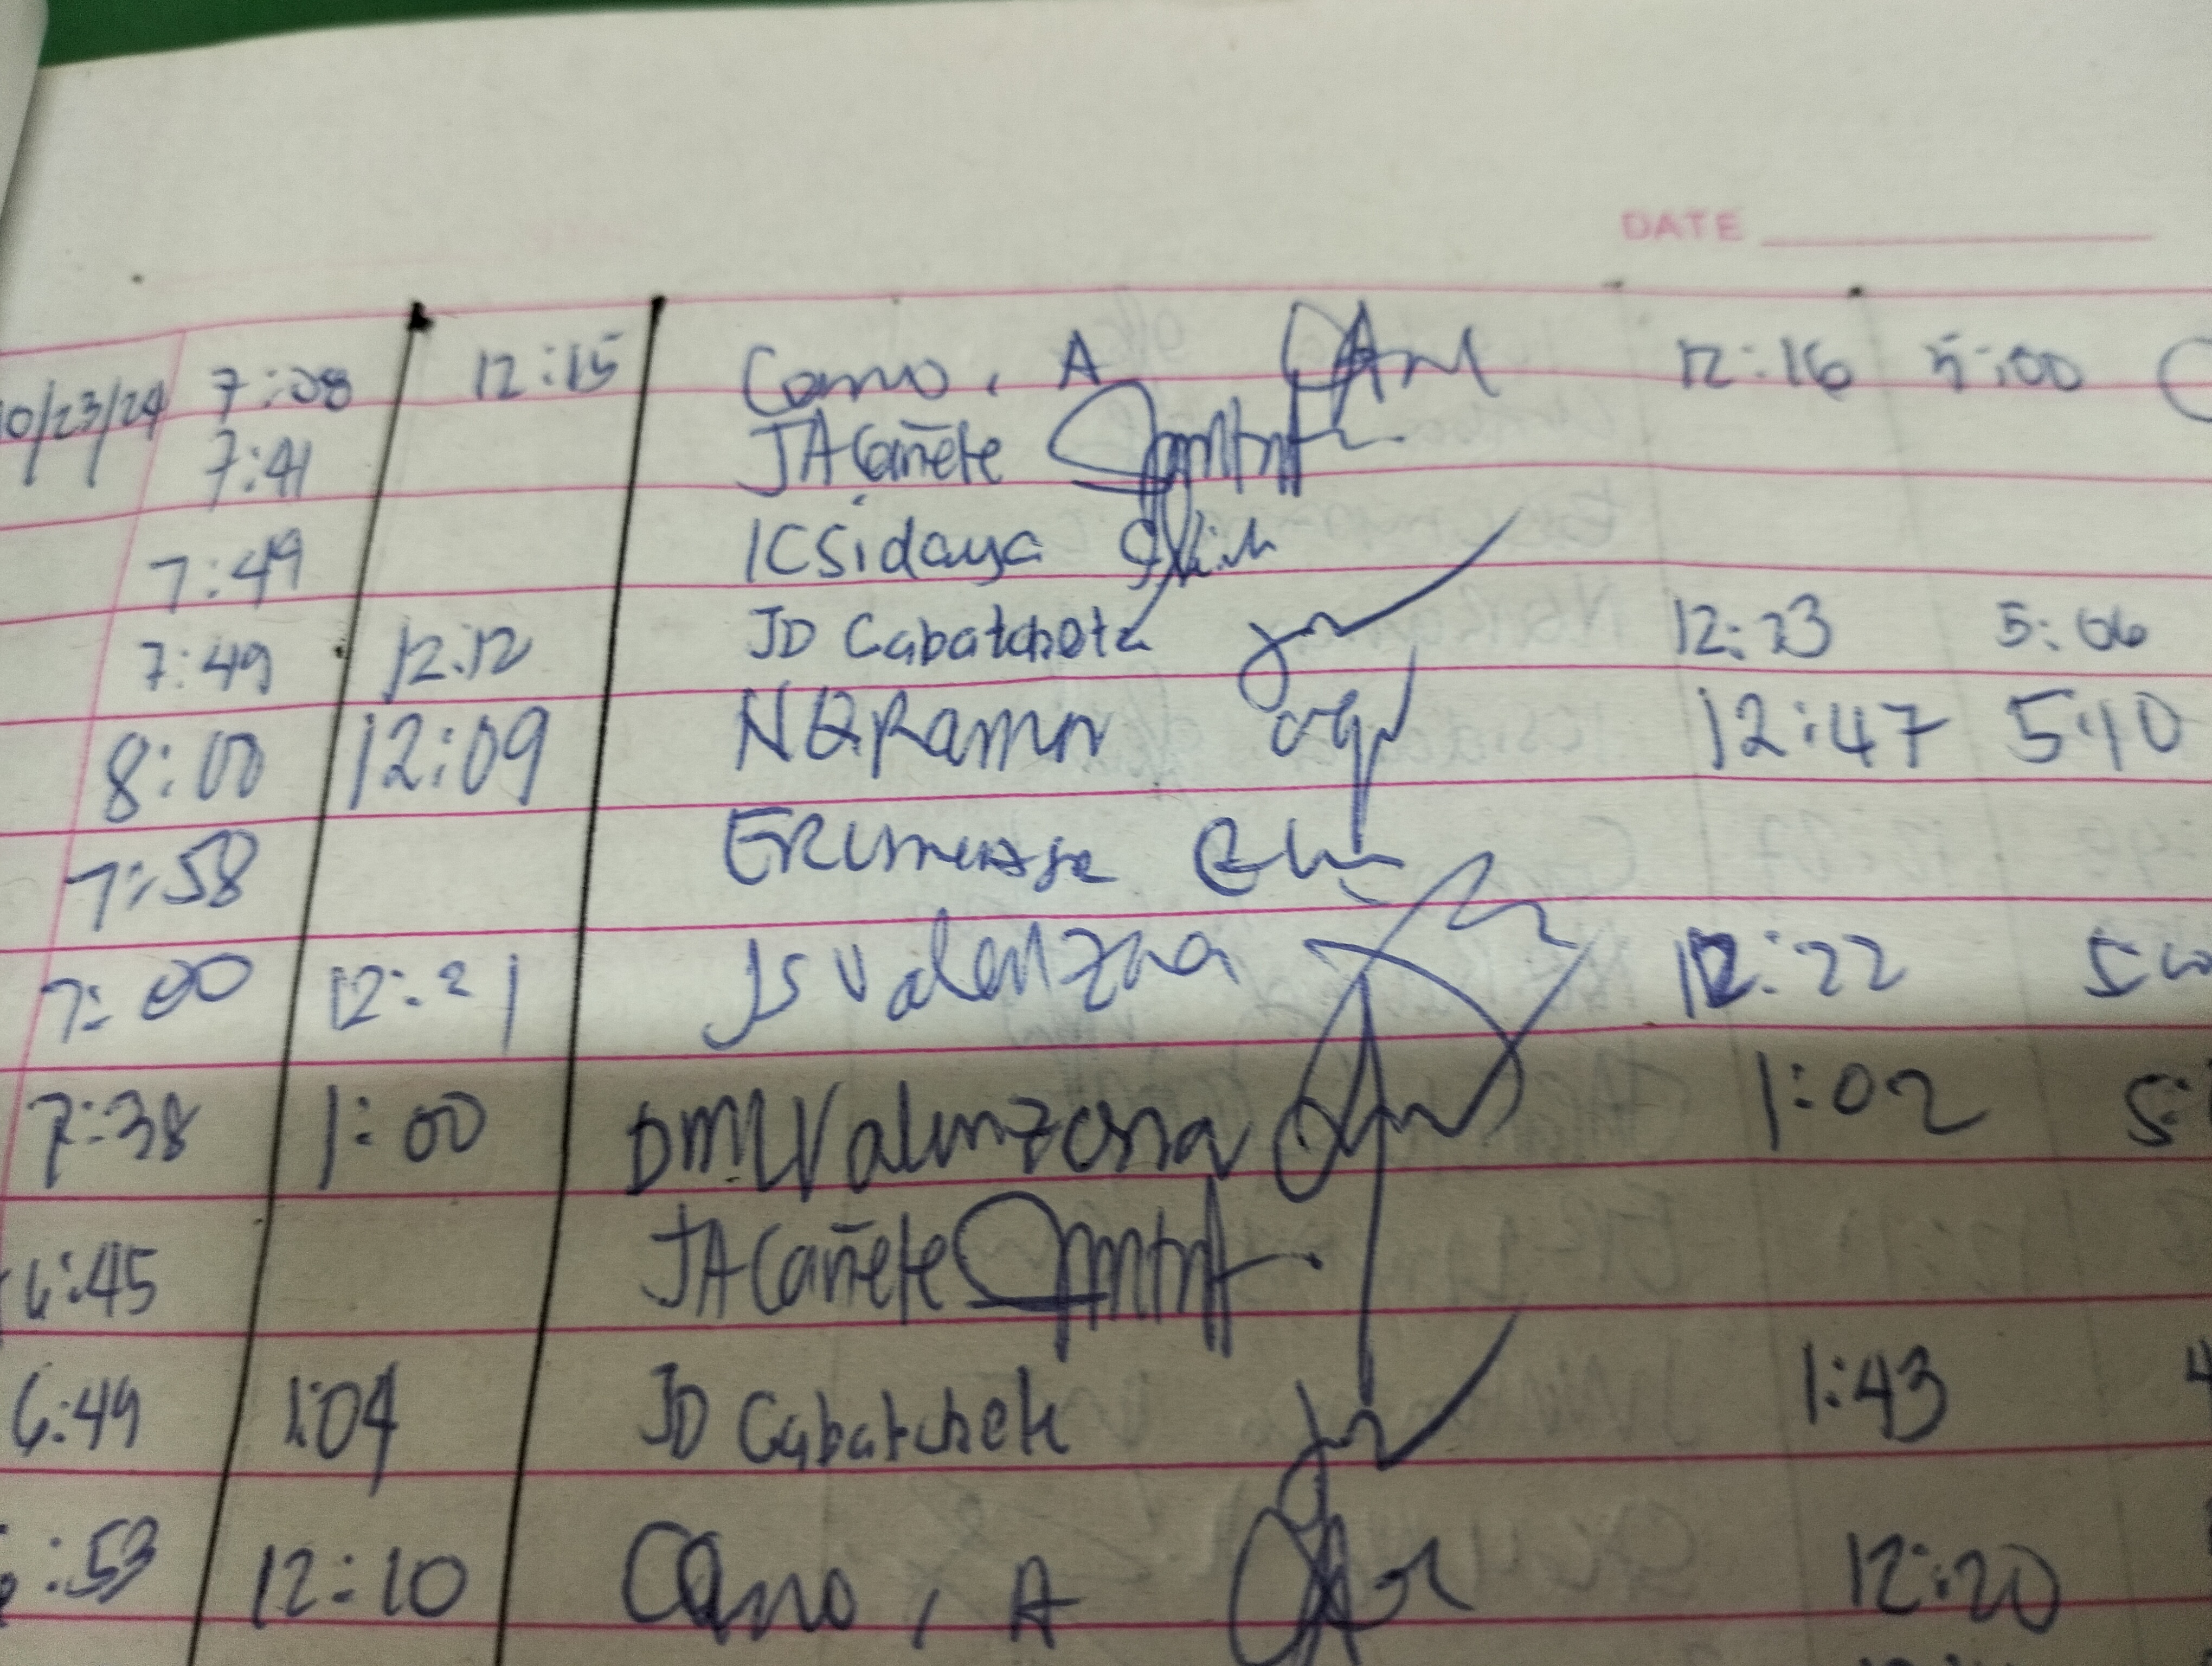 DATE
10/23/24 7:08 12:15 Cano, A 12:16 5:00
7:41 JA Cañete
7:49 ICSidaya
7:49 12:12 JD Cabatchete 12:23 5:06
8:00 12:09 NQRamor 12:47 5:10
7:58
7:00 12:21 JS Valenzona 12:22
7:38 1:00 DMLValenzona 1:02
6:45 JA Cañete
6:49 1:04 JD Cabatchete 1:43
:53 12:10 Cano, A 12:20